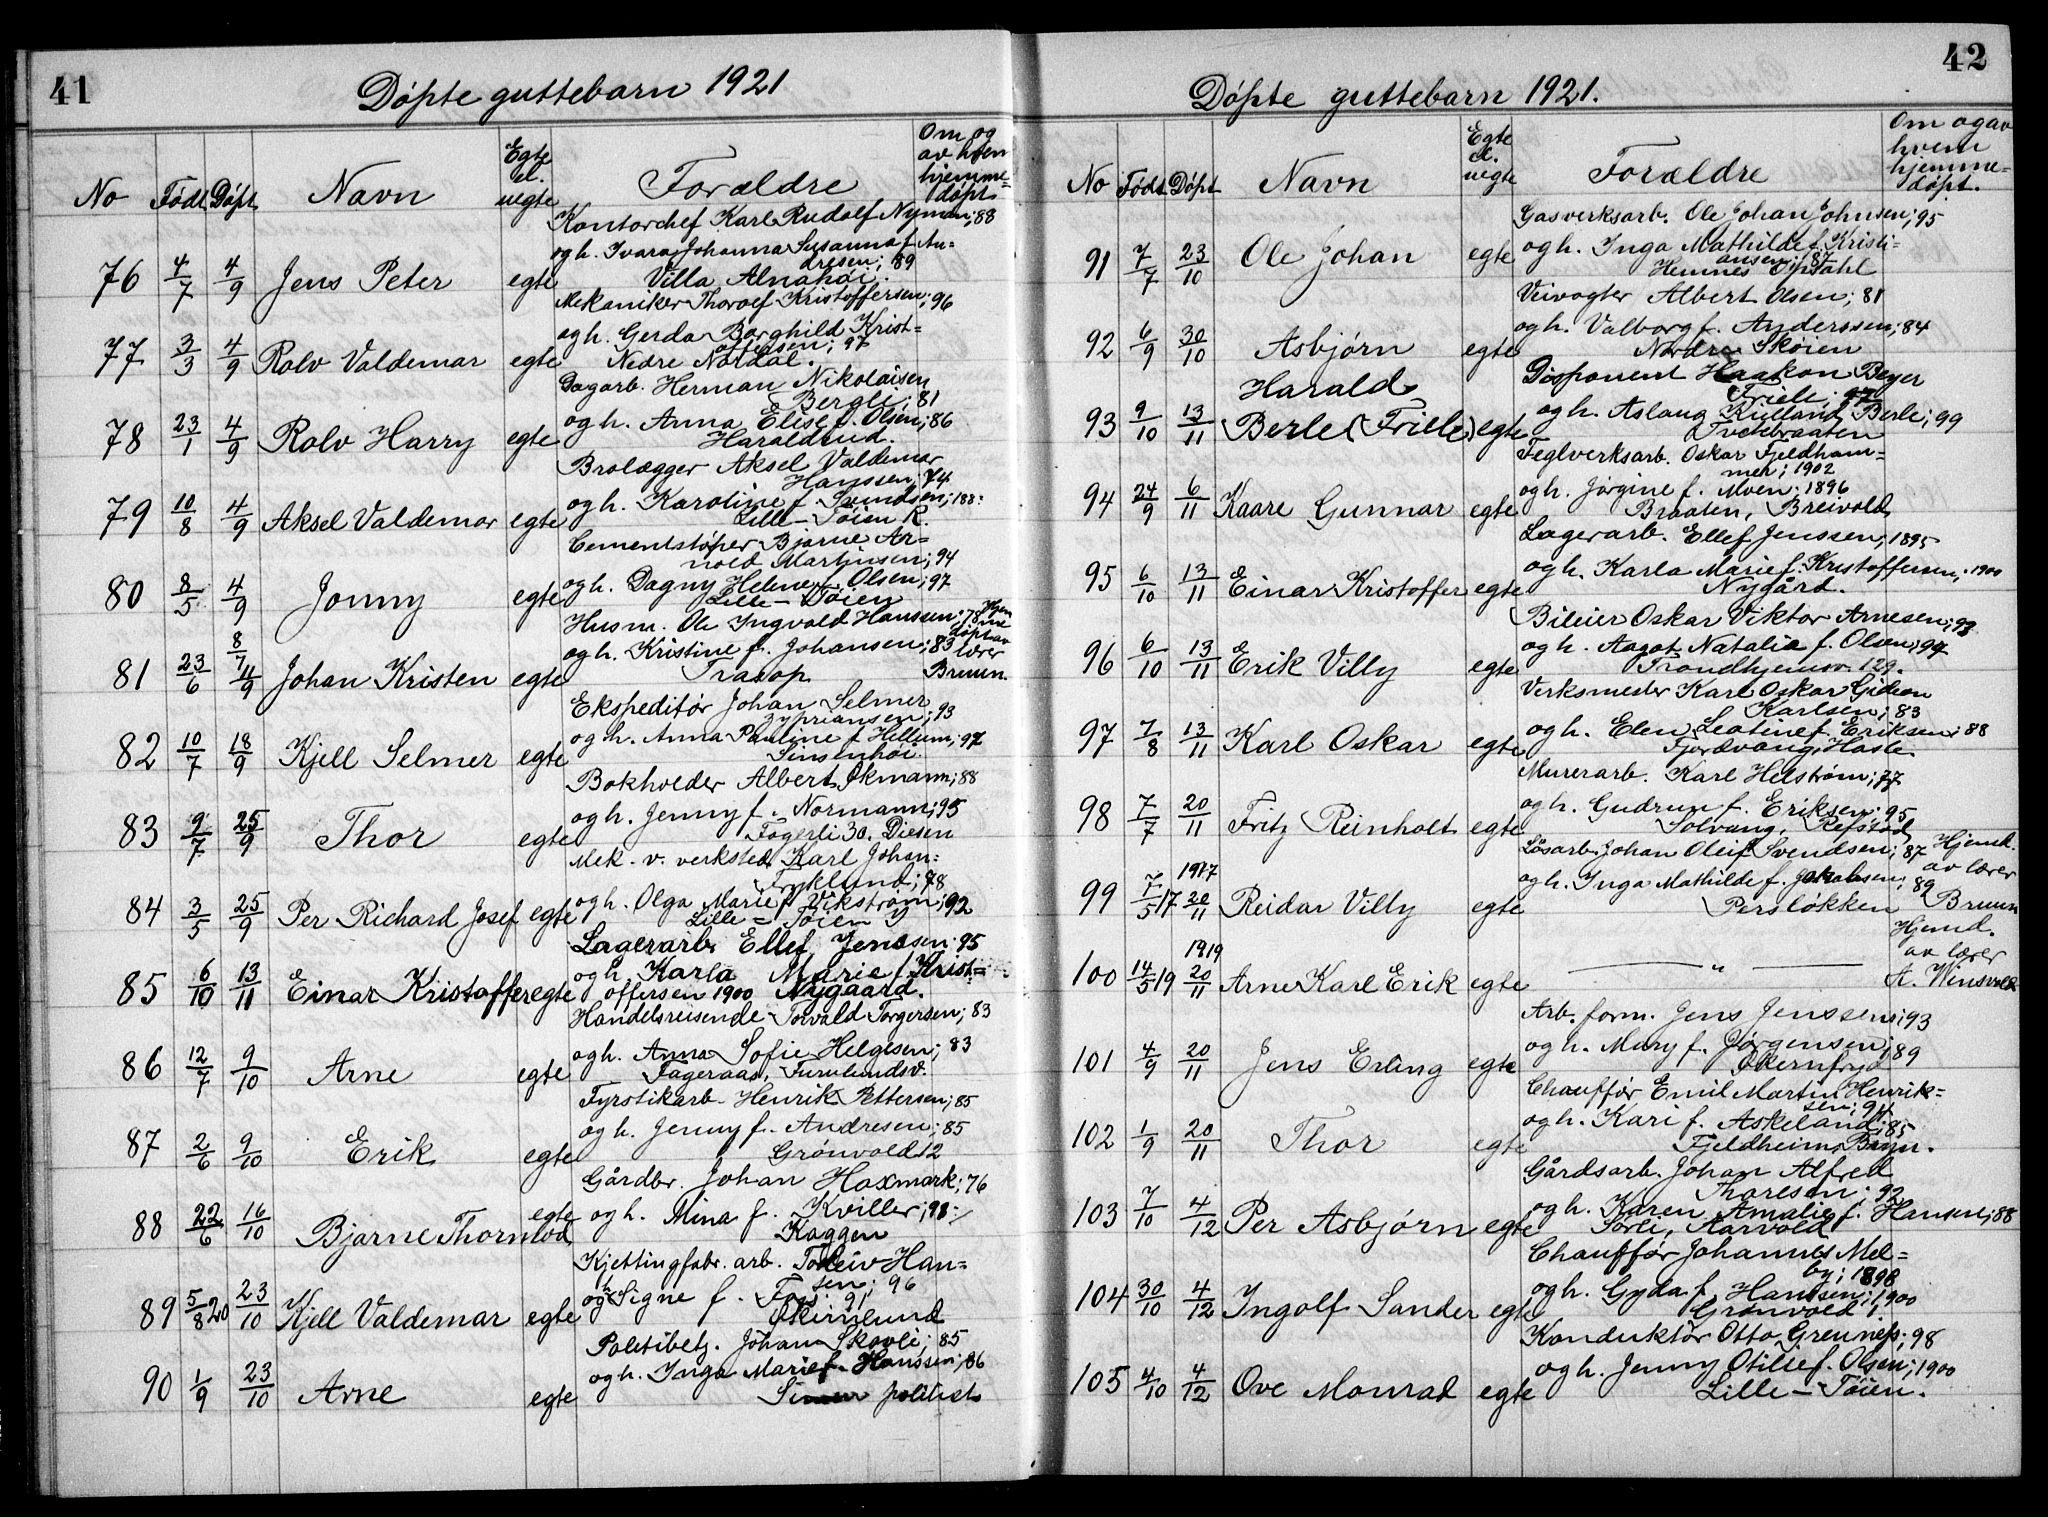 41
Døpte guttebarn 1921
No Født Døpt Navn Egte el. uegte Forældre Om og av hvem hjemme=døpt
Kontorchef Karl Rudolf Nyman; 88
og h. Ivara Johanna Susanna f. An=
dresen; 89
76 4/7 4/9 Jens Peter egte Villa Alnahøi.
Mekaniker Thorolf Kristoffersen; 96
og h. Gerda Borghild Krist=
offersen; 97
77 3/3 4/9 Rolv Valdemar egte Nedre Nordal.
Dagarb. Herman Nikolaisen
Bergli; 81
og h. Anna Elise f. Olsen; 86
78 23/1 4/9 Rolv Harry egte Haraldrud.
Brolægger Aksel Valdemar
Hanssen; 74
og h. Karoline f. Svendsen; 188:
79 10/8 4/9 Aksel Valdemar egte Lille-Tøien R.
Cementstøper Bjarne Ar=
nold Martinsen; 94
og h. Dagny Helene f. Olsen; 97
80 8/5 4/9 Jonny egte Lille-Tøien
Husm. Ole Ingvald Hanssen; 78 Hjem
me
døpt av
og h. Kristine f. Johansen; 83 lærer
81 23/6 8/7 11/9 Johan Kristen egte Trasop Bruun.
Ekspeditør Johan Selmer
Zypriansen; 93
og h. Anna Pauline f. Hellum; 97
82 10/7 18/9 Kjell Selmer egte Sinsenhøi.
Bokholder Albert Økmann; 88
og h. Jenny f. Normann; 95
83 9/7 25/9 Thor egte Fagerli 30. Disen
Mek. v. verksted Karl Johan=
Fryklund; 78
og h. Olga Marie f. Vikstrøm; 92
84 3/5 25/9 Per Richard Josef egte Lille-Tøien Y
Lagerarb. Ellef Jenssen 95
og h. Karla Marie f. Krist=
85 6/10 13/11 Einar Kristoffer egte offersen 1900 Nygaard.
Handelsreisende Torvald Torgersen; 83
og h. Anna Sofie Helgesen; 83
86 12/7 9/10 Arne egte Fageraas, Furulundsv.
Fyrstikarb. Henrik Pettersen; 85
og h. Jenny f. Andresen; 85
87 2/6 9/10 Erik egte Grønvold 12
Gårdbr. Johan Hoxmark; 76
og h. Mina f. Kviller; 98
88 22/6 16/10 Bjarne Thormod egte Kaggen
Kjettingfabr. arb. Torleiv Han=
sen; 96
og h. Signe f. Foss; 91
89 5/8 20 23/10 Kjell Valdemar egte Økernlund
Politibetj. Johan Skovli; 85
og h. Inga Marie f. Hanssen; 86
90 1/9 23/10 Arne egte Sinsen politist
42
Døpte guttebarn 1921.
No Født Døpt Navn Egte el. uegte Forældre Om og av hvem hjemme=døpt.
Gasverksarb. Ole Johan Johnsen; 95
og h. Inga Mathilde f. Kristi=
ansen; 87
91 7/7 23/10 Ole Johan egte Hemnes Opsahl
Veivogter Albert Olsen; 81
og h. Valborg f. Anderssen; 84
92 6/9 30/10 Asbjørn egte Nordre Skøien
Disponent Haakon Beyer
Friele; 97
og h. Aslaug Kulland Berle; 99
93 9/10 13/11 Harald Berle (Friele) egte Tvetebraaten
Teglverksarb. Oskar Fjeldham=
mer; 1902
og h. Jørgine f. Moen; 1896
94 24/9 6/11 Kaare Gunnar egte Braaten, Breivold
Lagerarb. Ellef Jenssen; 1895
og h. Karla Marie f. Kristoffersen; 1900
95 6/10 13/11 Einar Kristoffer egte Nygård.
Bileier Oskar Viktor Arnesen; 93
og h. Aagot Natalia f. Olsen; 97
96 6/10 13/11 Erik Villy egte Trondhjemsv. 129.
Verksmester Karl Oskar Gideon
Karlsen; 83
og h. Elen Leatine f. Eriksen; 88
97 7/8 13/11 Karl Oskar egte Fjordvang, Hasle.
Murerarb. Karl Helstrøm; 77
og h. Gudrun f. Eriksen; 95
98 7/7 20/11 Fritz Reinholt egte Solvang, Refstad
Løsarb. Johan Oleif Svendsen; 87 Hjemd.
og h. Inga Mathilde f. Jakobsen; 89 av lærer
1917
99 7/5 17 20/11 Reidar Villy egte Persløkken Bruun
Hjemd.
1919 av lærer
100 14/5 19 20/11 Arne Karl Erik egte — " — A. Winsvold
Arb. form. Jens Jenssen; 93
og h. Mary f. Jørgensen; 89
101 4/9 20/11 Jens Erling egte Økernfryd
Chauffør Emil Martin Henrik=
sen; 94
og h. Kari f. Askeland; 85
102 1/9 20/11 Thor egte Fjeldheim, Bryn.
Gårdsarb. Johan Alfred
Thoresen; 92
og h. Karen Amalie f. Hansen; 88
103 7/10 4/12 Per Asbjørn egte Sørli, Aarvold
Chauffør Johannes Mel=
by; 1898
og h. Gyda f. Hansen; 1900
104 30/10 4/12 Ingolf Sander egte Grønvold 1,
Konduktør Otto Greuness; 98
og h. Jenny Otilie f. Olsen; 1900
105 4/10 4/12 Ove Monrad egte Lille-Tøien.